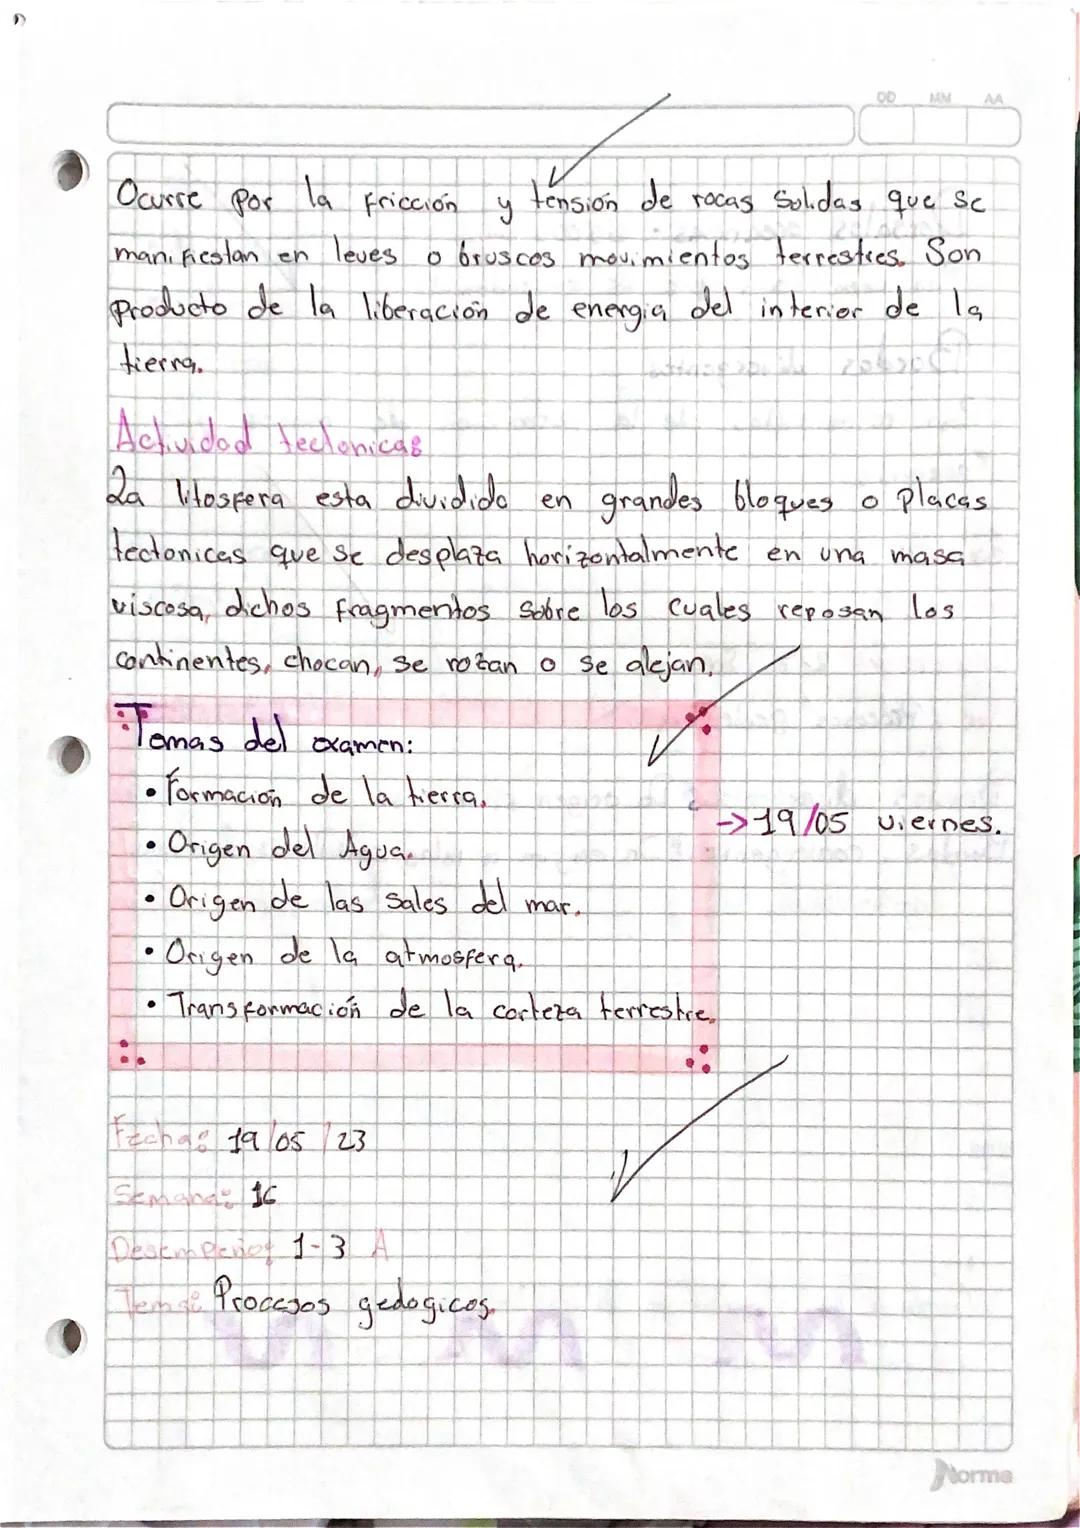 DD MM AA
Ocurre por la fricción y tensión de rocas Solidas que se
manifiestan en leves o bruscos movimientos terrestres. Son
producto de la liberación de energia del interior de la
tierra.
Actividad tectonicas
La litosfera esta dividida en grandes bloques o placas
tectonicas que se desplaza horizontalmente en una masa
viscosa, dichos fragmentos sobre los cuales reposan los
continentes, chocan, se rozan o se alejan.
Temas del examen:
• Formación de la tierra.
→ 19/05 viernes.
• Origen del Agua.
• Origen de las sales del mar.
• Origen de la atmosfera.
• Transformación de la corteza terrestre.
Fecha: 19/05/23
Semana: 16
Desempeño: 1-3 A
Tema: Procesos geologicos.
Norma